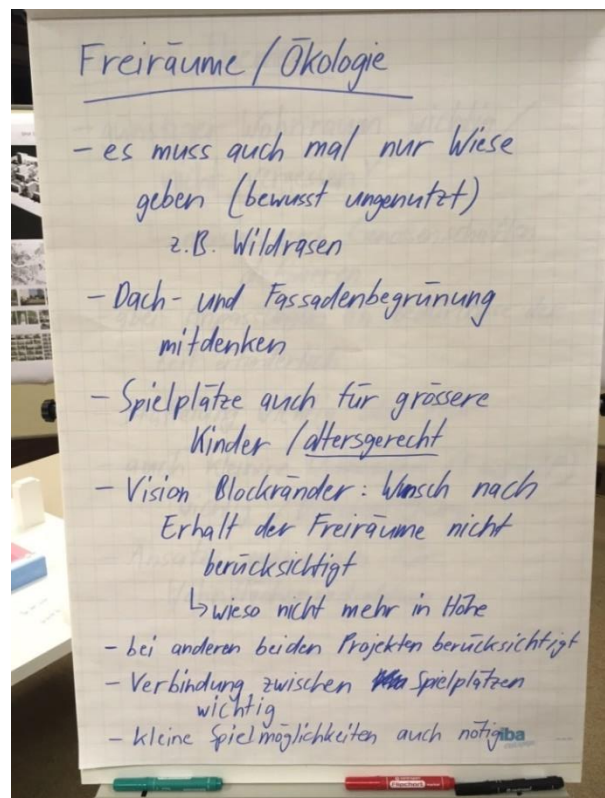 Freiräume / Ökologie
- es muss auch mal nur Wiese
geben (bewusst ungenutzt)
z.B. Wildrasen
- Dach- und Fassadenbegrünung
mitdenken
- Spielplätze auch für grössere
Kinder / altersgerecht
- Vision Blockränder: Wunsch nach
Erhalt der Freiräume nicht
berücksichtigt
↳ wieso nicht mehr in Höhe
- bei anderen beiden Projekten berücksichtigt
- Verbindung zwischen Spielplätzen
wichtig
- kleine Spielmöglichkeiten auch nötig
iba